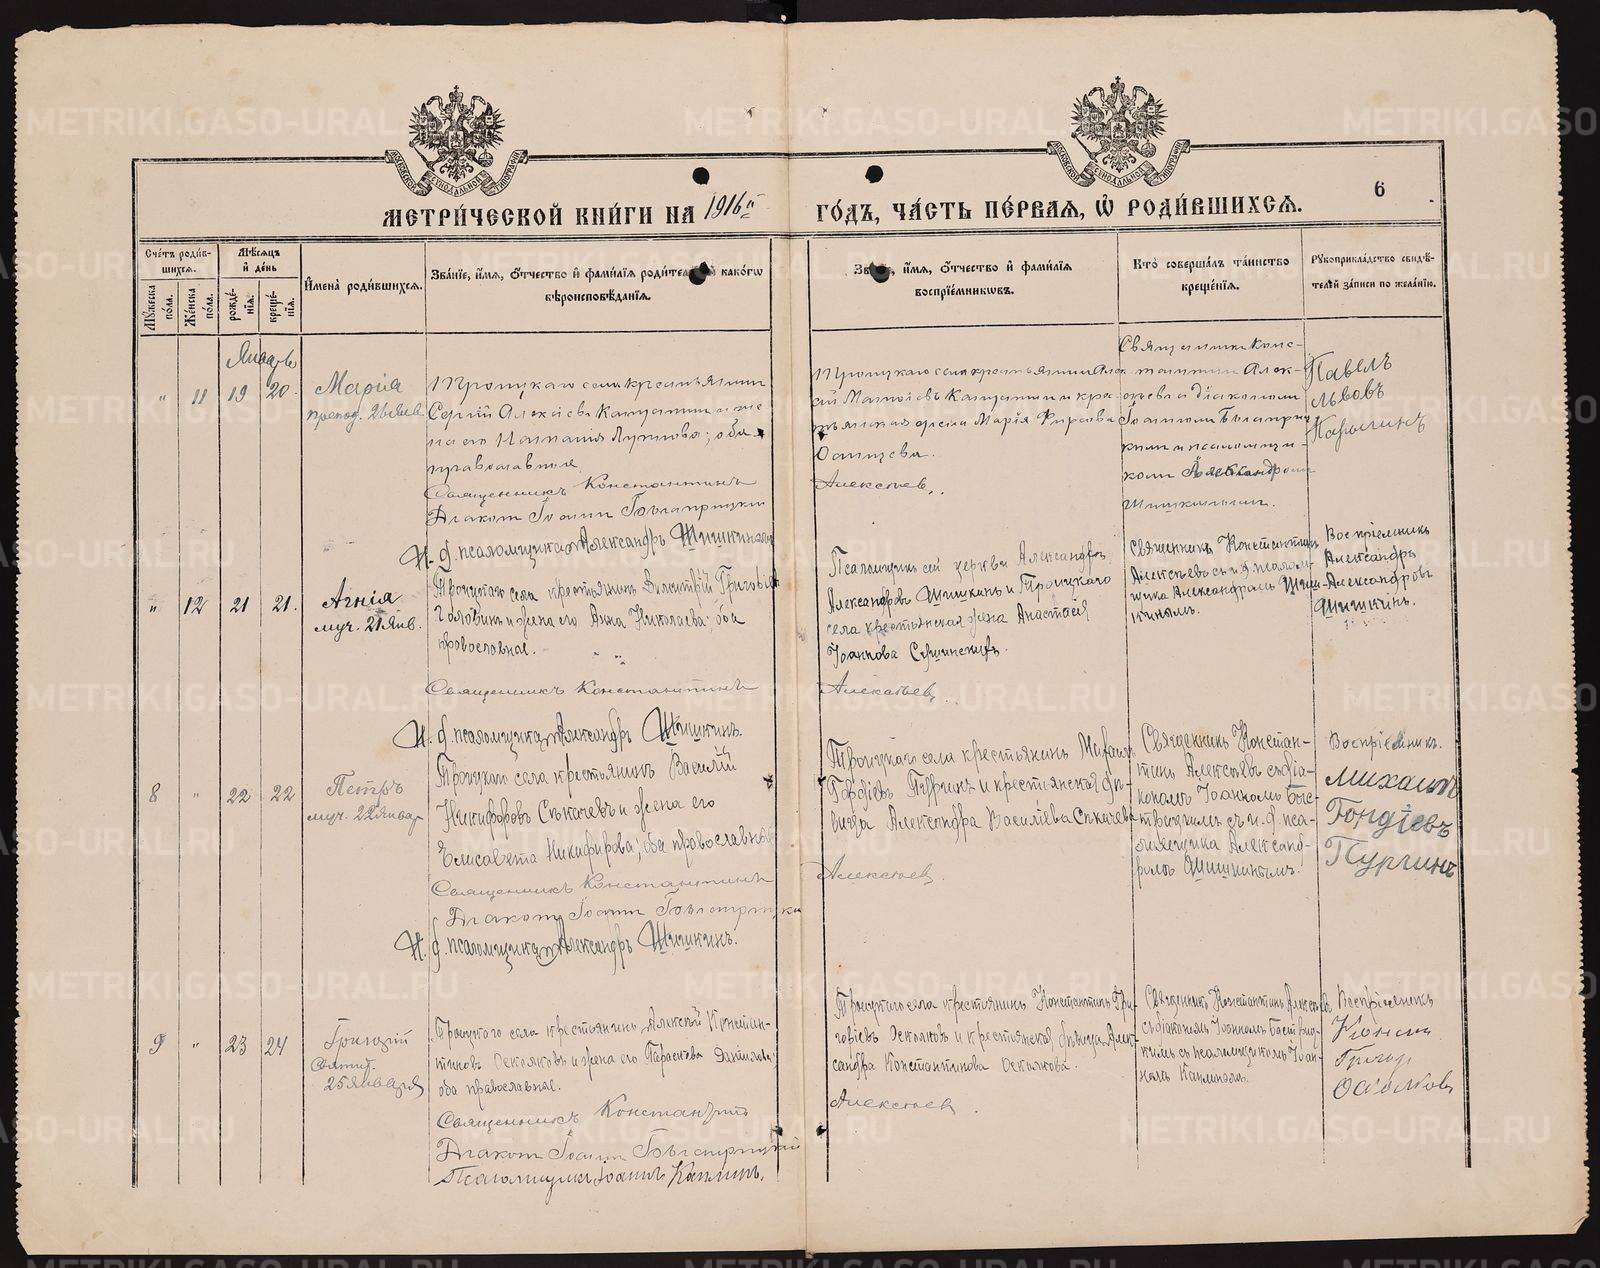 МЕТРИ́ЧЕСКОЙ КНИ́ГИ НА 1916й ГО́ДЪ, ЧА́СТЬ ПЕ́РВАЯ, Ѡ҆ РОДИ́ВШИХСЯ.
6
Сче́тъ роди́в-
шихся.
Мѣ́сяцъ
и҆ де́нь
Мꙋ́жеска по́ла.
Же́нска по́ла.
рожде́-
нїѧ.
креще́-
нїѧ.
И҆мена̀ роди́вшихся.
Зва́нїе, и҆́мѧ, ѻ҆́тчество и҆ фами́лїѧ роди́телей и҆ како́гѡ
вѣроисповѣ́данїѧ.
и҆́мѧ, ѻ҆́тчество и҆ фами́лїѧ
воспрїе́мникѡвъ.
Кто̀ соверша́лъ та́инство
креще́нїѧ.
Рꙋкоприкла́дство свидѣ́-
телей за́писи по жела́нїю.
Январь
" 11 19 20.
Марія
препод. 26 янв.
Троицкаго села крестьянин
Сергій Алексіевъ Капустин и же-
на его Наталія Лукоева; оба
православные.
Священникъ Константинъ
Діаконъ Іоаннъ Быстрицкій
И. д. псаломщика Александръ Шишкинъ
Троицкаго села крестьянин Алек-
сѣй Матвіевъ Капустин и крес-
тьянская жена Марія Фирсова
Алексѣевъ.
Священник Конс-
тантин Алек-
сѣевъ с діаконом
Іоанном Быстриц-
ким и псаломщи-
ком Александром
Шишкиным.
Павелъ
Львовъ
" 12 21 21.
Агнія
муч. 21 янв.
Троицкаго села крестьянинъ Димитрій Григорьевъ
Головинъ и жена его Анна Николаева; оба
православные.
Священникъ Константинъ
И. д. псаломщика Александръ Шишкинъ.
Псаломщик сей церкви Александръ
Александровъ Шишкинъ и Троицкаго
села крестьянская жена Анастасія
Іоаннова
Алексѣевъ
Священникъ Константинъ
Алексѣевъ съ и. д. псалом-
щика Александромъ Шиш-
кинымъ.
Воспріемникъ
Александръ
Александровъ
Шишкинъ.
8 " 22 22
Петръ
муч. 22 января
Троицкаго села крестьянинъ Василій
Никифоровъ Сѣкачевъ и жена его
Елисавета Никифорова; оба православные
Священникъ Константинъ
Діаконъ Іоаннъ Быстрицкій
И. д. псаломщика Александръ Шишкинъ.
Троицкаго села крестьянинъ Михаилъ
Гордіевъ Пургинъ и крестьянская дѣ-
вица Александра Василіева Сѣкачева
Алексѣевъ.
Священникъ Констан-
тинъ Алексѣевъ съ діа-
кономъ Іоанномъ Быс-
трицкимъ съ и. д. пса-
ломщика Александ-
ромъ Шишкинымъ.
Воспріемникъ.
Михаилъ
Гордіевъ
Пургинъ
9 " 23 24
Григорій
Святит.
25 января
Троицкаго села крестьянинъ Алексѣй Констан-
тиновъ Осколковъ и жена его Параскева Данилова;
оба православные.
Священникъ Константинъ
Діаконъ Іоаннъ Быстрицкій
Псаломщикъ Іоаннъ Каплинъ.
Троицкаго села крестьянинъ Константинъ Гри-
горіевъ Осколковъ и крестьянская дѣвица Алек-
сандра Константинова Осколкова.
Алексѣевъ.
Священникъ Константинъ Алексѣевъ
съ діакономъ Іоанномъ Быстриц-
кимъ съ псаломщикомъ Іоан-
номъ Каплинымъ.
Воспріемникъ
Конст
Григор
Осколковъ